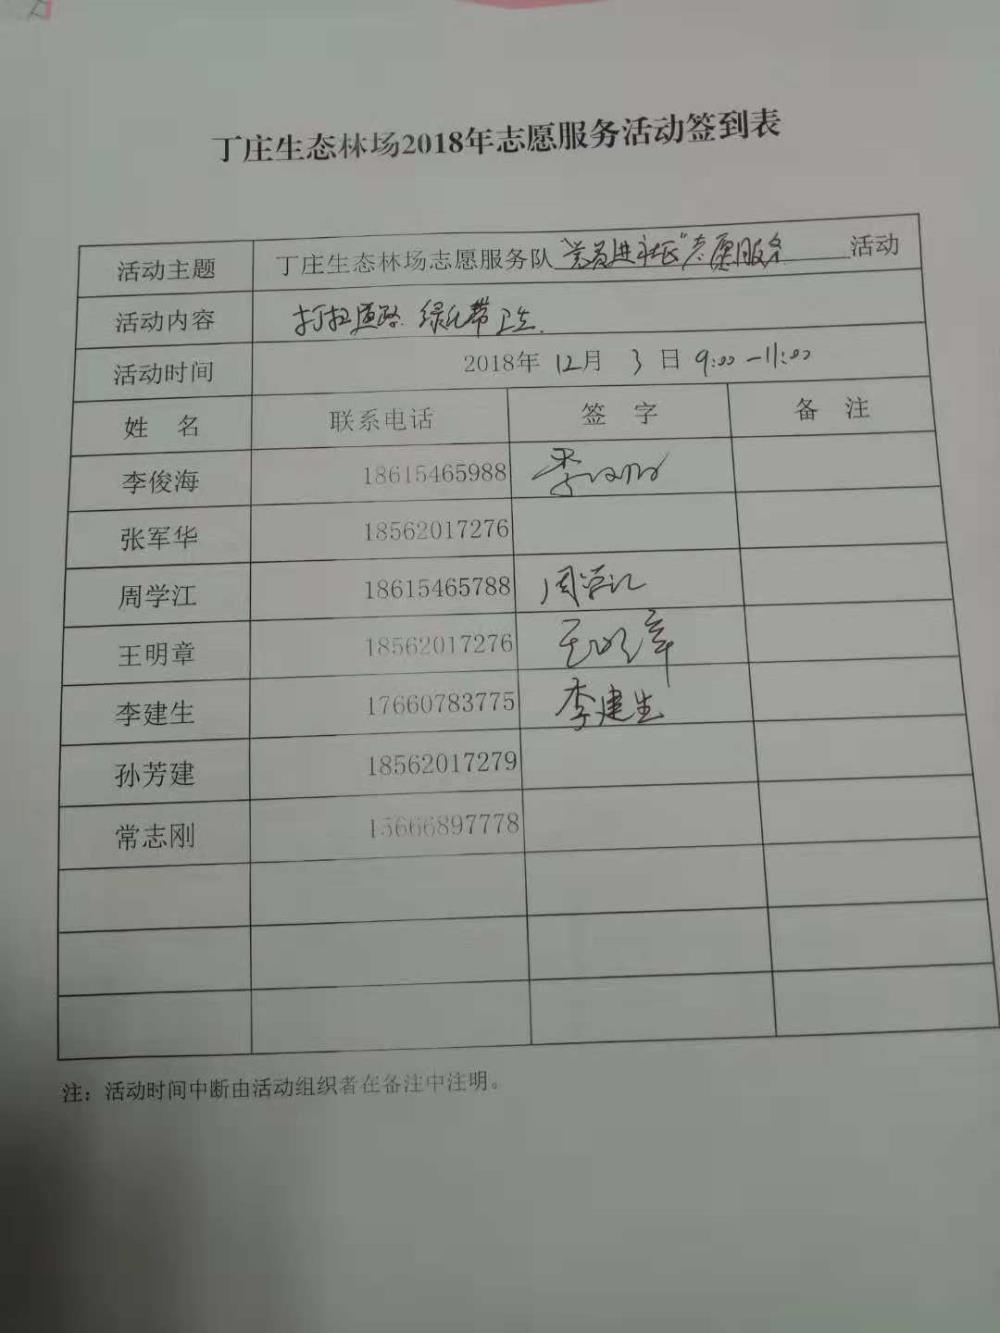 丁庄生态林场2018年志愿服务活动签到表
活动主题 丁庄生态林场志愿服务队"党员进社区"志愿服务 活动
活动内容 打扫道路.绿化带卫生.
活动时间 2018年 12月 3 日 9:00-11:00
姓 名 联系电话 签 字 备 注
李俊海 18615465988 李俊海
张军华 18562017276
周学江 18615465788 周学江
王明章 18562017276 王明章
李建生 17660783775 李建生
孙芳建 18562017279
常志刚 15666897778
注：活动时间中断由活动组织者在备注中注明。